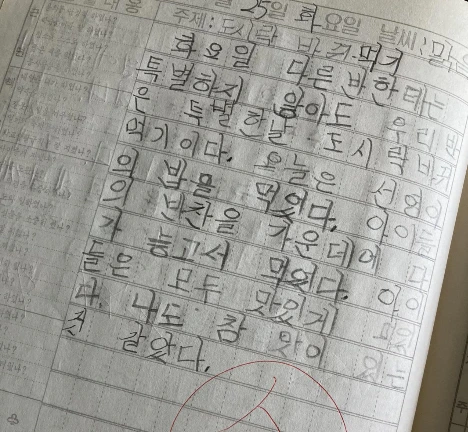 25일 화요일 날씨: 맑음
주제: 도시락 바꿔 먹기
화요일 다른 반한테는
특별하지 않아도 우리 반
은 특별한날 도시락 바꿔
먹기이다. 오늘은 선연이
의 밥을 먹었다. 아이들
의 반찬을 가운데에 다
가 놓고서 먹었다. 아이
들은 모두 맛있게
다. 나도 참 맛이 있는
것 같았다.